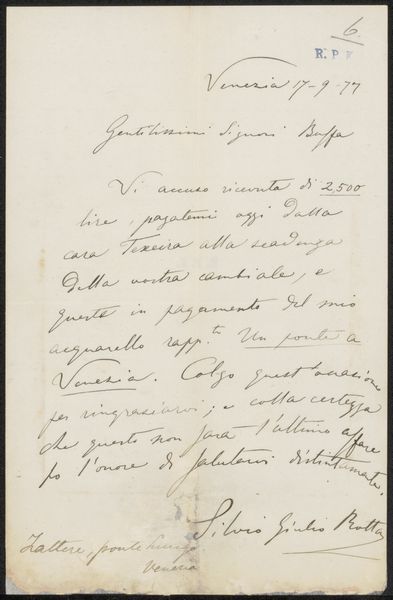 6.
R. P. K
Venezia 17-9-77
Gentilissimi Signori Buffa
Vi accuso ricevuta di 2,500
lire, pagatemi oggi dalla
casa Texeira alla scadenza
della vostra cambiale, e
questo in pagamento del mio
acquarello rapp.te Un ponte a
Venezia. Colgo quest'occasione
per ringraziarvi; e colla certezza
che questo non sarà l'ultimo affare
fo l'onore di salutarvi distintamente.
Silvio Giulio Rotta
Zattere, ponte lungo
Venezia